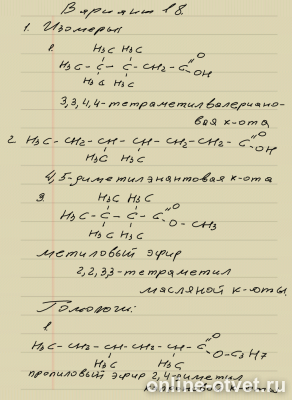 Вариант 18
1. Изомеры
1. H₃C H₃C
H₃C - C - C - CH₂ - C O
OH
H₃C H₃C
3,3,4,4-тетраметилвалериано-
вая к-ота
2. H₃C - CH₂ - CH - CH - CH₂ - CH₂ - C O
OH
H₃C H₃C
4,5-диметилэнантовая к-ота
3. H₃C H₃C
H₃C - C - C - C O
O - CH₃
H₃C H₃C
метиловый эфир
2,2,3,3-тетраметил
масляной к-оты
Гомологи:
1.
H₃C - CH₂ - CH - CH₂ - CH - C O
O - C₃H₇
H₃C H₃C
пропиловый эфир 2,4-диметил
к-оты
online-otvet.ru